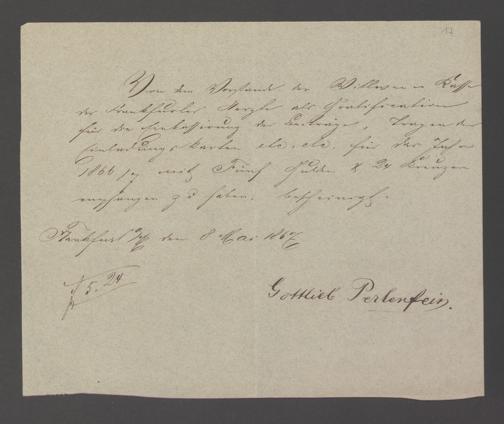 17
Von dem Vorstande der Wittwen Kasse
der Frankfurter Aerzte als Gratification
für die Einkassirung der Beiträge, Tragen der
Einladungskarten etc. etc. für das Jahr
1866/67 mit Fünf Gulden & 24 Kreuzer
empfangen zu haben, bescheinigt.
Frankfurt a/M den 8 Mai 1867
f 5. 24
Gottlieb Perlenfein.